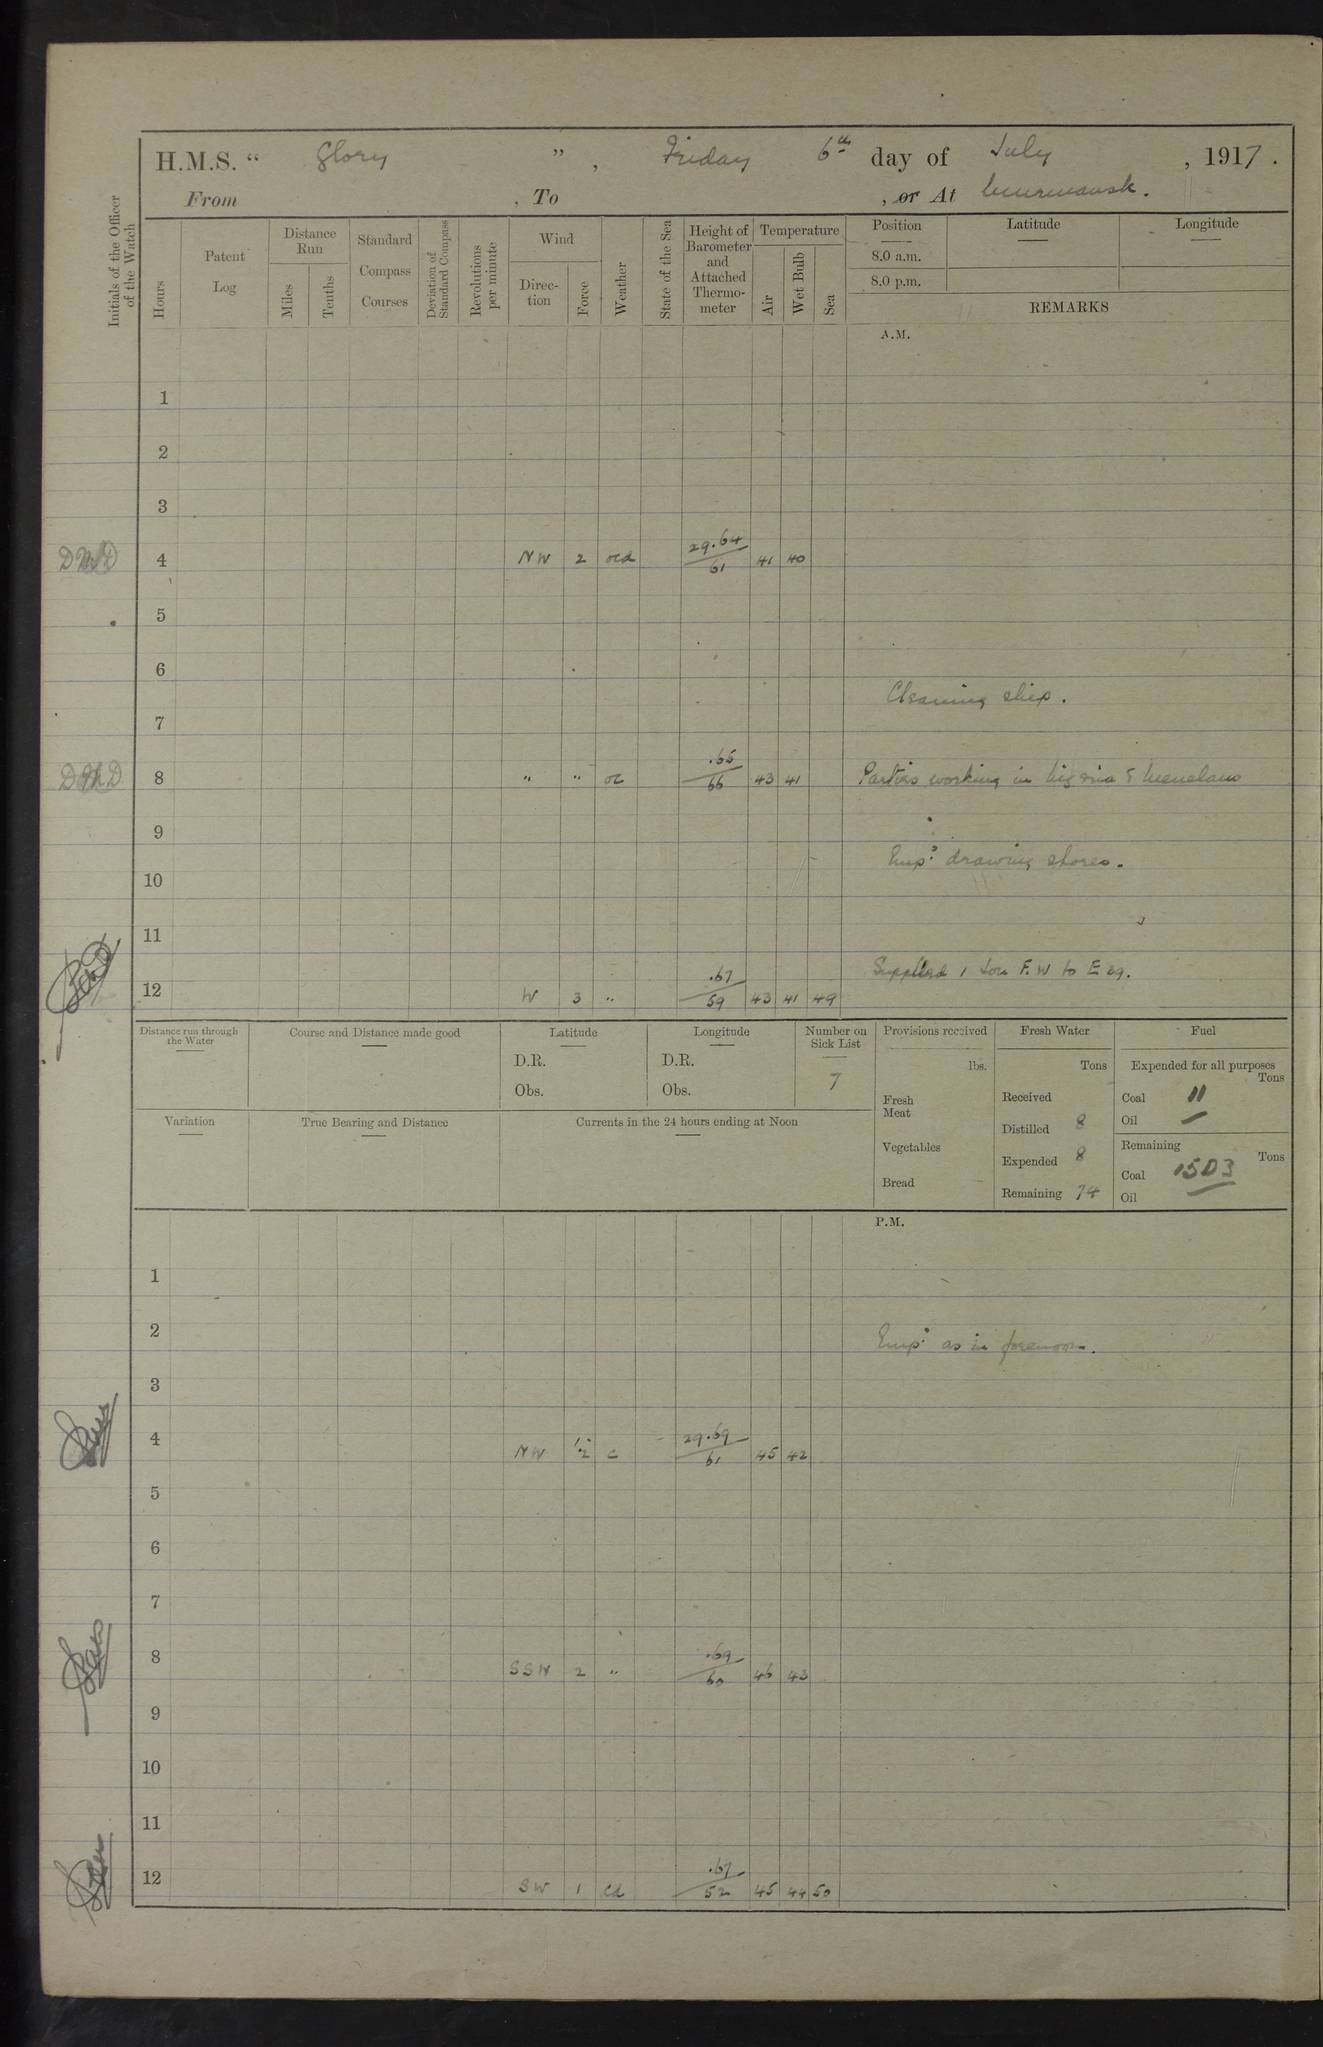 H.M.S. “ Glory ” , Friday 6th day of July , 1917 .
From , To , or At Murmansk .
Initials of the Officer of the Watch
Hours
Patent Log
Distance Run
Miles
Tenths
Standard Compass Courses
Deviation of Standard Compass
Revolutions per minute
Wind
Direction
Force
Weather
State of the Sea
Height of Barometer and Attached Thermometer
Temperature
Air
Wet Bulb
Sea
Position
8.0 a.m.
8.0 p.m.
Latitude
Longitude
REMARKS
A.M.
1
2
3
4 NW 2 ocd 29.64/61 41 40
5
6
Cleaning ship.
7
8 " " oc .65/66 43 41 Parties working in Nigeria & Menelaus
9
Emp: drawing stores.
10
11
Supplied 1 ton F.W to E 39.
12 W 3 " .67/59 43 41 49
Distance run through the Water
Course and Distance made good
Latitude
D.R.
Obs.
Longitude
D.R.
Obs.
Number on Sick List
7
Provisions received
lbs.
Fresh Meat
Vegetables
Bread
Fresh Water
Tons
Received
Distilled 8
Expended 8
Remaining 74
Fuel
Expended for all purposes
Tons
Coal 11
Oil —
Remaining
Tons
Coal 1503
Oil —
Variation
True Bearing and Distance
Currents in the 24 hours ending at Noon
P.M.
1
2 Emp: as in forenoon.
3
4 NW 1.2 c 29.69/61 45 42
5
6
7
8 SSW 2 " .69/60 46 43
9
10
11
12 SW 1 cd .67/52 45 44 50